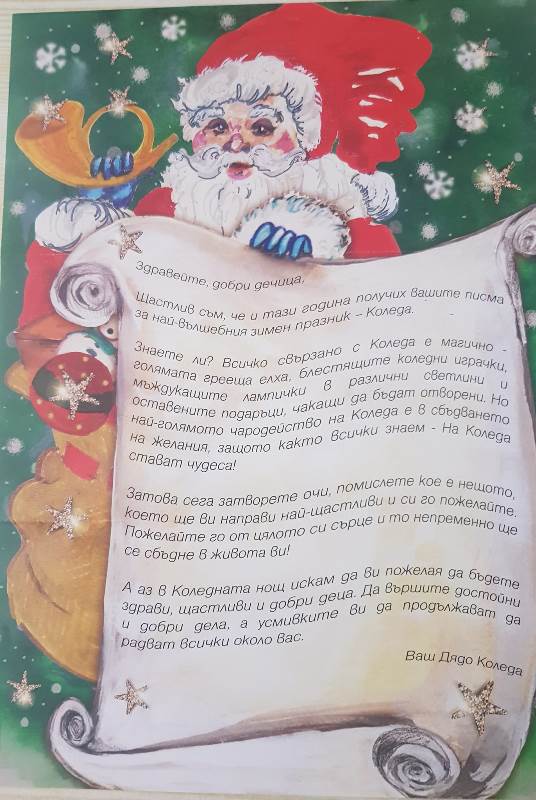 Здравейте, добри дечица,
Щастлив съм, че и тази година получих вашите писма
за най-вълшебния зимен празник – Коледа.
Знаете ли? Всичко свързано с Коледа е магично -
голямата грееща елха, блестящите коледни играчки,
мъждукащите лампички в различни светлини и
оставените подаръци, чакащи да бъдат отворени. Но
най-голямото чародейство на Коледа е в сбъдването
на желания, защото както всички знаем - На Коледа
стават чудеса!
Затова сега затворете очи, помислете кое е нещото,
което ще ви направи най-щастливи и си го пожелайте.
Пожелайте го от цялото си сърце и то непременно ще
се сбъдне в живота ви!
А аз в Коледната нощ искам да ви пожелая да бъдете
здрави, щастливи и добри деца. Да вършите достойни
и добри дела, а усмивките ви да продължават да
радват всички около вас.
Ваш Дядо Коледа